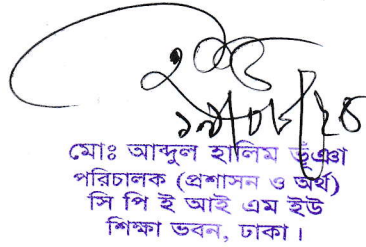 মোঃ আব্দুল হালিম ভূঁঞা
পরিচালক (প্রশাসন ও অর্থ)
সি পি ই আই এম ইউ
শিক্ষা ভবন, ঢাকা।